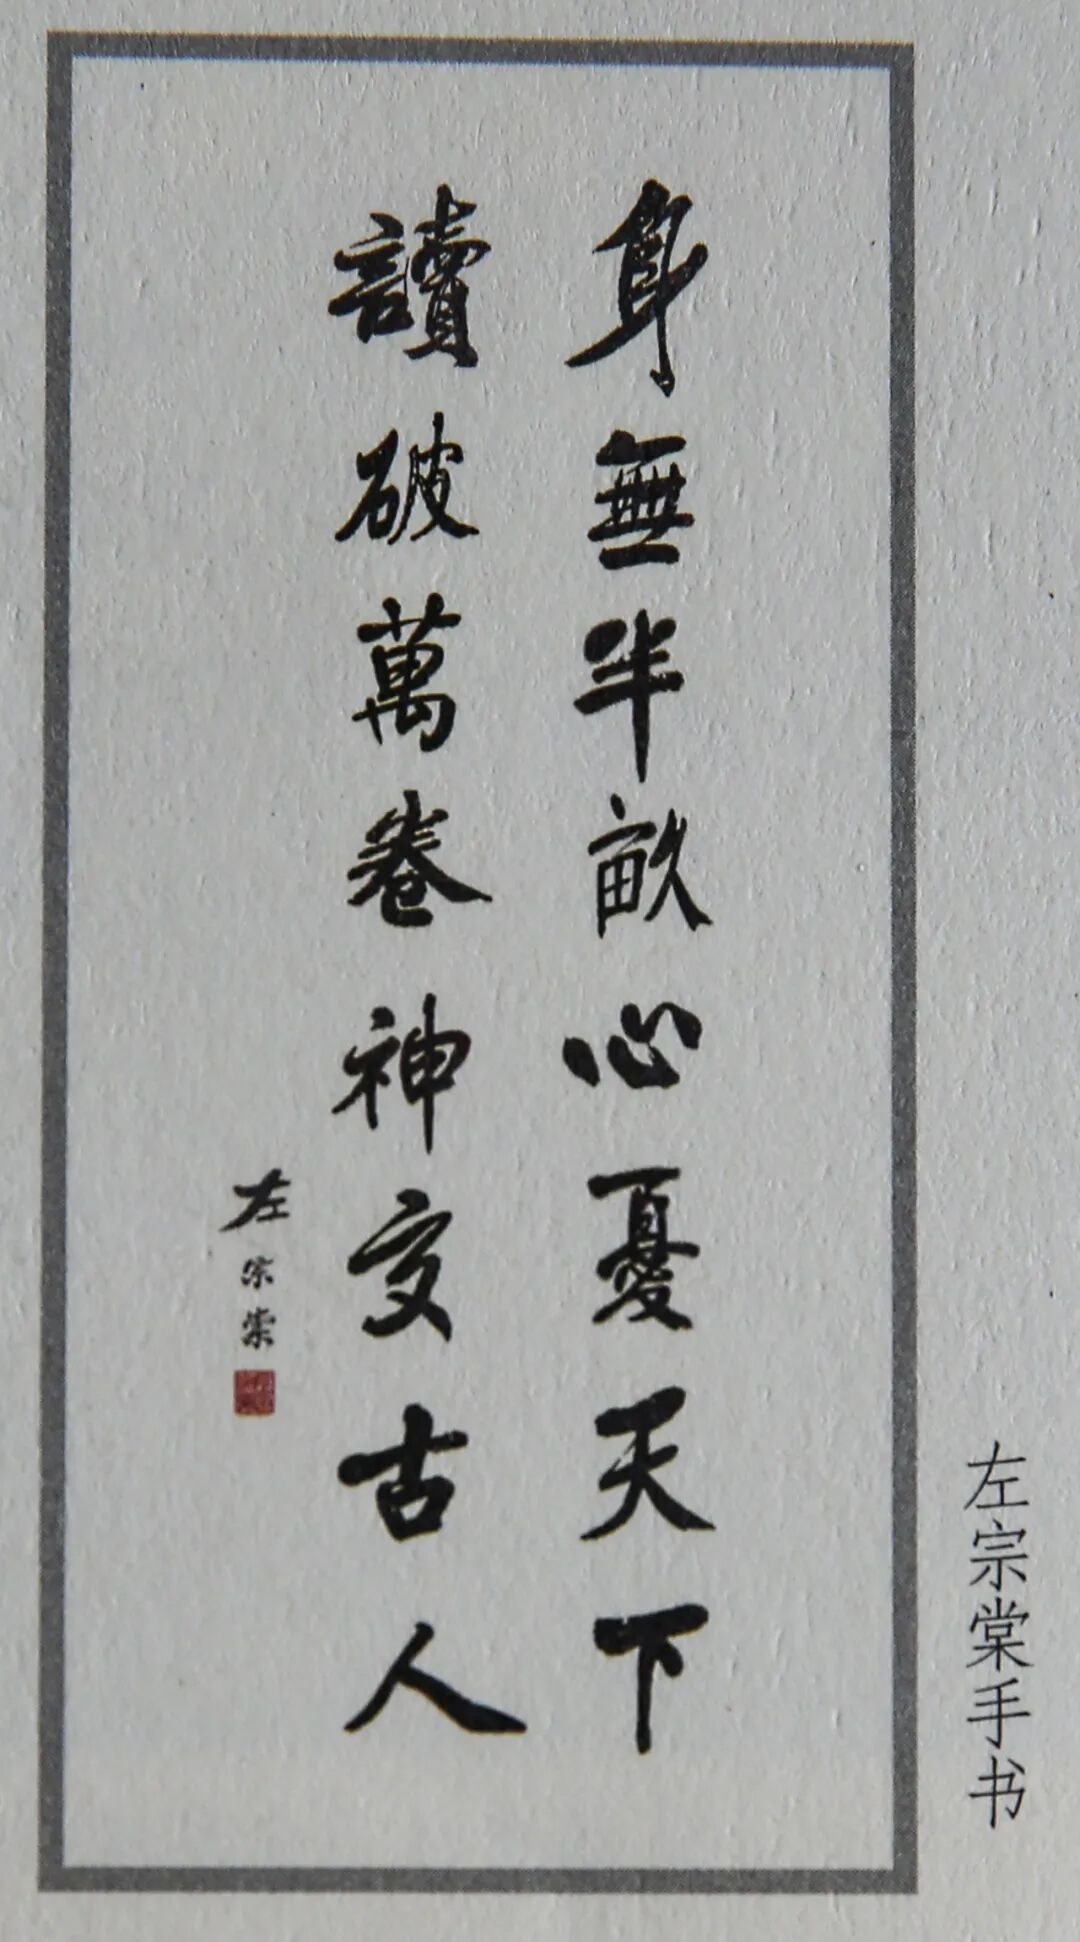 身無半畝心憂天下
讀破萬卷神交古人
左宗棠
左宗棠手书